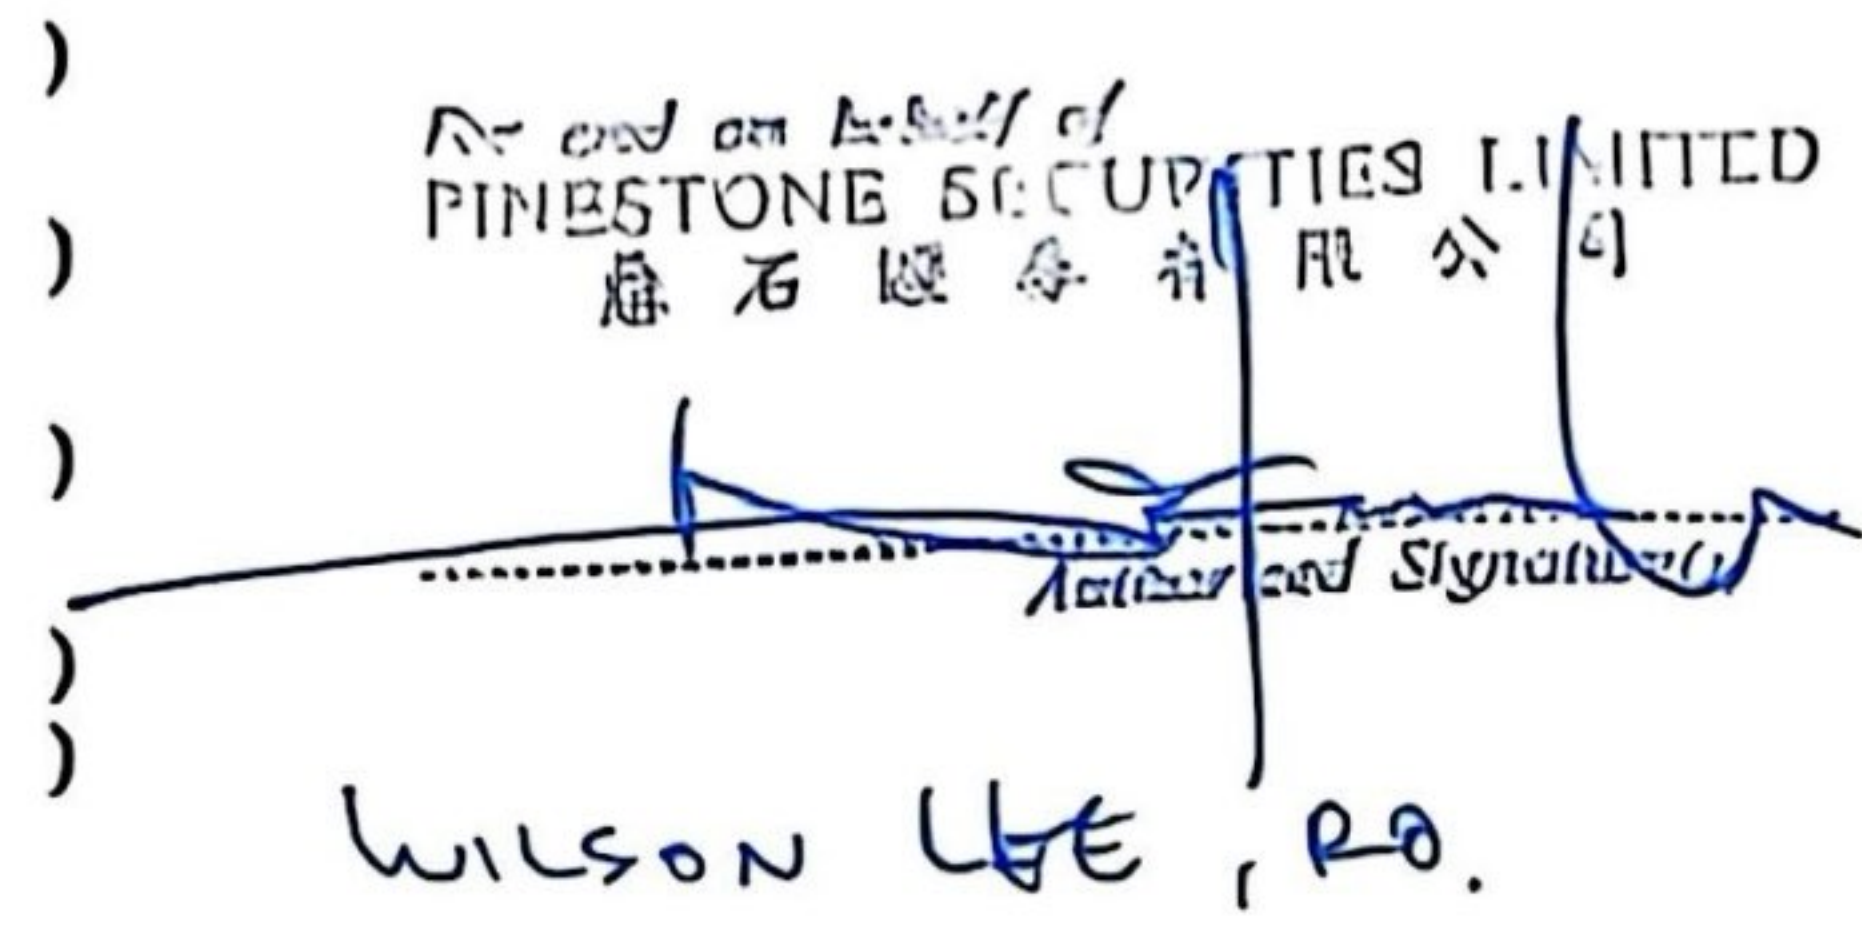 )
For and on behalf of
PINESTONE SECURITIES LIMITED
)
鼎石證券有限公司
)
Authorized Signature(s)
)
)
WILSON LEE, RO.